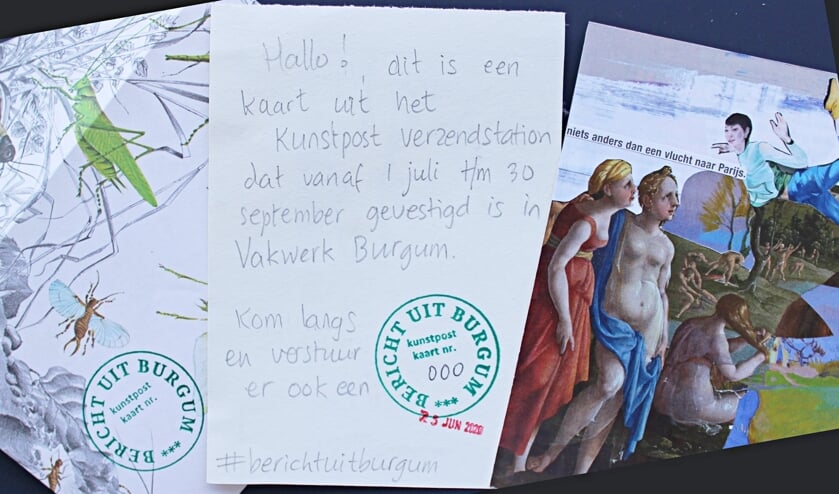 BERICHT UIT BURGUM ***
kunstpost
kaart nr.
Hallo! dit is een
kaart uit het
Kunstpost verzendstation
dat vanaf 1 juli t/m 30
september gevestigd is in
Vakwerk Burgum.
Kom langs
en verstuur
er ook een
BERICHT UIT BURGUM ***
kunstpost
kaart nr.
000
JUN 2020
#berichtuitburgum
niets anders dan een vlucht naar Parijs.